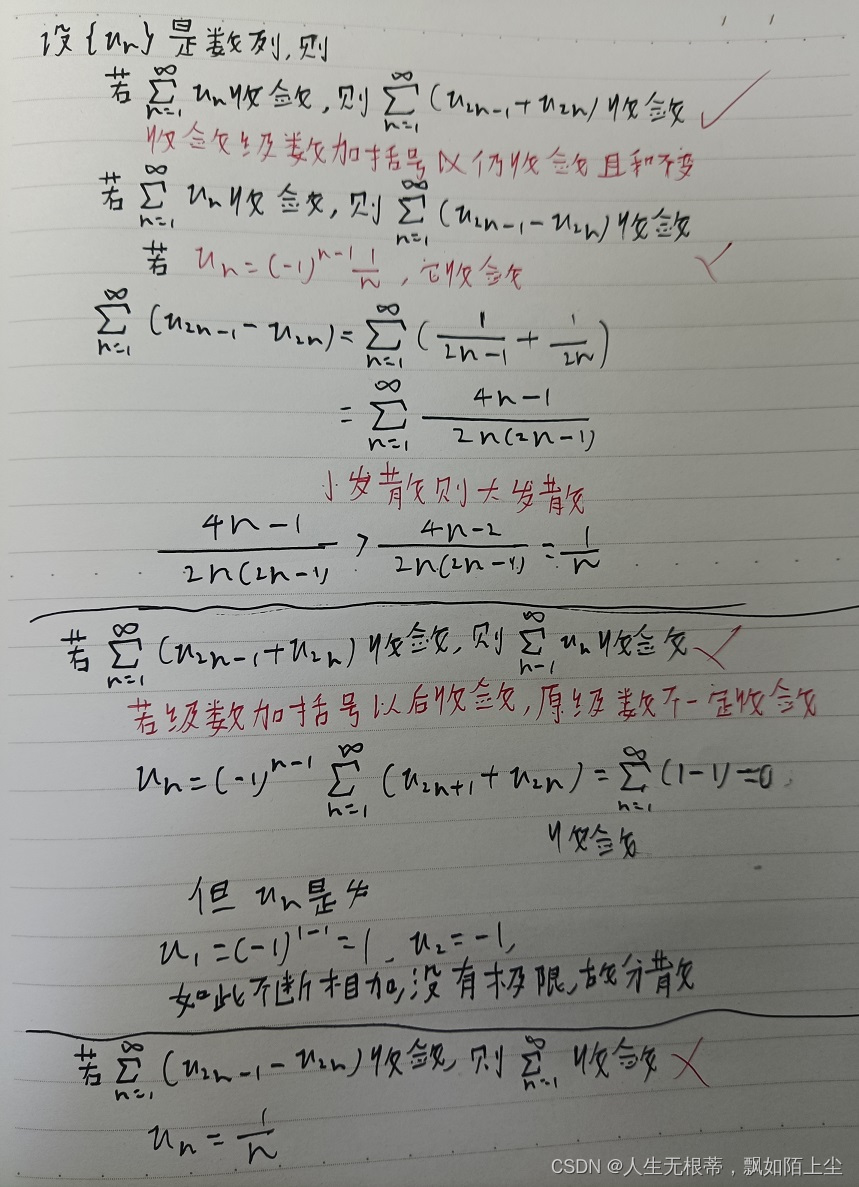 设{uₙ}是数列,则
若 ∑_{n=1}^{∞} uₙ收敛,则 ∑_{n=1}^{∞} (u_{2n-1}+u_{2n})收敛 ✓
收敛级数加括号以仍收敛且和不变
若 ∑_{n=1}^{∞} uₙ收敛,则 ∑_{n=1}^{∞} (u_{2n-1}-u_{2n})收敛
若 uₙ=(-1)^{n-1} 1/n ,它收敛 ×
∑_{n=1}^{∞} (u_{2n-1}-u_{2n})=∑_{n=1}^{∞} (1/(2n-1)+1/(2n))
=∑_{n=1}^{∞} (4n-1)/(2n(2n-1))
小发散则大发散
(4n-1)/(2n(2n-1)) > (4n-2)/(2n(2n-1)) = 1/n
若 ∑_{n=1}^{∞} (u_{2n-1}+u_{2n})收敛,则 ∑_{n-1}^{∞} uₙ收敛 ×
若级数加括号以后收敛,原级数不一定收敛
uₙ=(-1)^{n-1} ∑_{n=1}^{∞} (u_{2n+1}+u_{2n})=∑_{n=1}^{∞} (1-1)=0
收敛
但 uₙ是
u₁=(-1)^{1-1}=1, u₂=-1,
如此不断相加,没有极限,故分散
若 ∑_{n=1}^{∞} (u_{2n-1}-u_{2n})收敛,则 ∑_{n=1}^{∞} 收敛 ×
uₙ=1/n
CSDN @人生无根蒂，飘如陌上尘